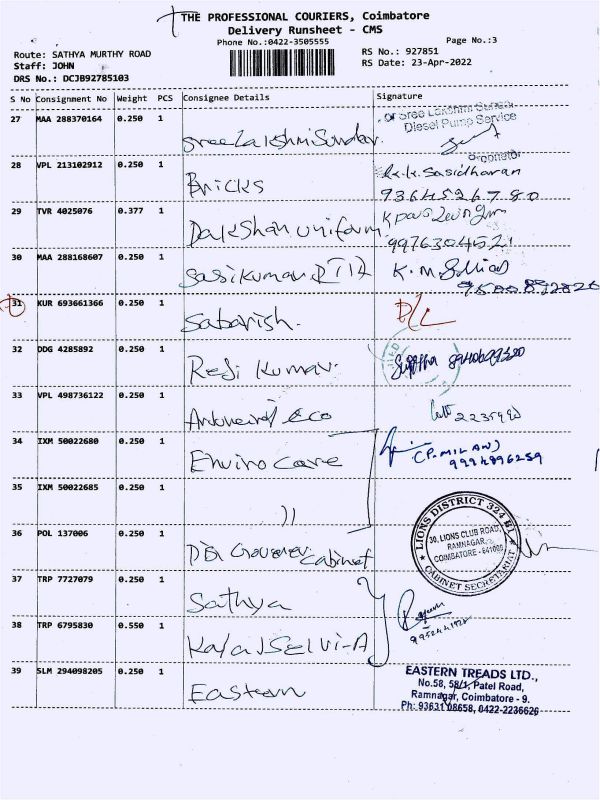 THE PROFESSIONAL COURIERS, Coimbatore
Delivery Runsheet - CMS
Phone No.:0422-3505555
Page No.:3
Route: SATHYA MURTHY ROAD
RS No.: 927851
Staff: JOHN
RS Date: 23-Apr-2022
DRS No.: DCJB92785103
S No Consignment No Weight PCS Consignee Details Signature
27 MAA 288370164 0.250 1 Sree Lakshmi Sundar
Diesel Pump Service
Proprietor
28 VPL 213102912 0.250 1 Bricks
Sasidharan
9364526780
29 TVR 4025076 0.377 1 Dakshan uniform
9976304521
30 MAA 288168607 0.250 1 Sasikumar
31 KUR 693661366 0.250 1 Sabarish. D/L
32 DDG 4285892 0.250 1 Redi Kumar
33 VPL 498736122 0.250 1
34 IXM 50022680 0.250 1 Enviro Care
(P. MILAN)
9994896259
35 IXM 50022685 0.250 1 ))
36 POL 137006 0.250 1 Cabinet
LIONS DISTRICT 324 B1
30, LIONS CLUB ROAD,
RAMNAGAR,
COIMBATORE - 641009
CABINET SECRETARIAT
37 TRP 7727079 0.250 1 Sathya
38 TRP 6795830 0.550 1 Kalai Selvi-A
39 SLM 294098205 0.250 1 Eastern
EASTERN TREADS LTD.,
No.58, 58/1, Patel Road,
Ramnagar, Coimbatore - 9.
Ph: 93631 08658, 0422-2236626